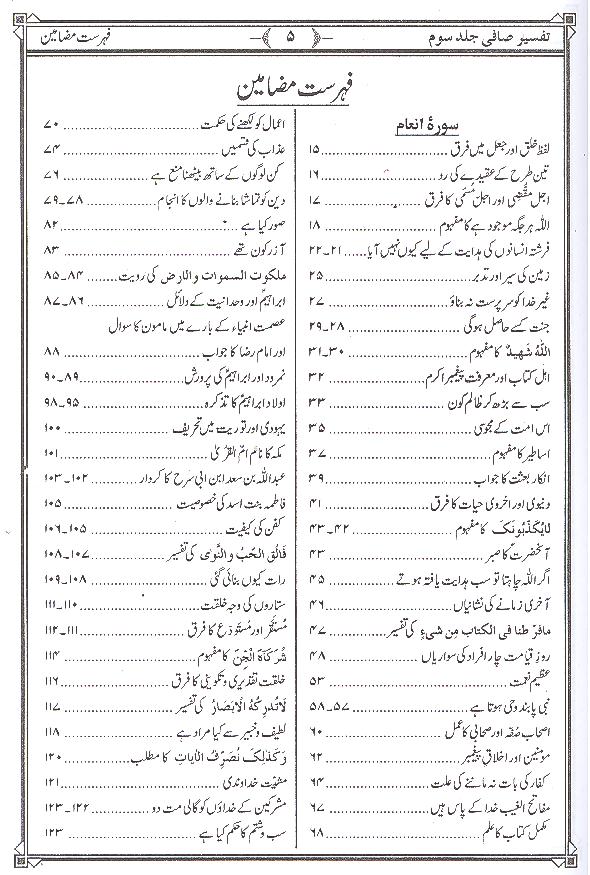 تفسیر صافی جلد سوم ﴿ ۵ ﴾ فہرست مضامین
فہرست مضامین
سورۂ انعام
لفظ خلق اور جعل میں فرق ........ ۱۵
تین طرح کے عقیدے کی رد ........ ۱۶
اجل مقضٰی اور اجل مسمّٰی کا فرق ........ ۱۷
اللہ ہر جگہ موجود ہے کا مفہوم ........ ۱۸
فرشتہ انسانوں کی ہدایت کے لیے کیوں نہیں آیا ........ ۲۱۔۲۲
زمین کی سیر اور تدبر ........ ۲۵
غیر خدا کو سرپرست نہ بناؤ ........ ۲۷
جنت کسے حاصل ہوگی ........ ۲۸۔۲۹
اَللّٰہُ شَھِیدٌ کا مفہوم ........ ۳۰۔۳۱
اہل کتاب اور معرفت پیغمبر اکرم ........ ۳۲
سب سے بڑھ کر ظالم کون ........ ۳۳
اس امت کے مجوسی ........ ۳۵
اساطیر کا مفہوم ........ ۳۷
انکار بعثت کا جواب ........ ۳۹
دنیوی اور اخروی حیات کا فرق ........ ۴۱
لَایُکَذِّبُونَکَ کا مفہوم ........ ۴۲۔۴۳
آنحضرتؐ کا صبر ........ ۴۳
اگر اللہ چاہتا تو سب ہدایت یافتہ ہوتے ........ ۴۵
آخری زمانے کی نشانیاں ........ ۴۶
مافرّطنا فی الکتاب مِن شیءٍ کی تفسیر ........ ۴۷
روزِ قیامت چار افراد کی سواریاں ........ ۴۸
عظیم نعمت ........ ۵۳
نبی پابند وحی ہوتا ہے ........ ۵۷۔۵۸
اصحاب صُفّہ اور صحابی کا عمل ........ ۶۰
مومنین اور اخلاقِ پیغمبر ........ ۶۲
کفار کی بات نہ ماننے کی علت ........ ۶۴
مفاتح الغیب خدا کے پاس ہیں ........ ۶۷
مکمل کتاب کا علم ........ ۶۸
اعمال کو لکھنے کی حکمت ........ ۷۰
عذاب کی قسمیں ........ ۷۴
کن لوگوں کے ساتھ بیٹھنا منع ہے ........ ۷۶
دین کو تماشا بنانے والوں کا انجام ........ ۷۸۔۷۹
صور کیا ہے ........ ۸۲
آزر کون تھے ........ ۸۳
ملکوت السموات والارض کی رویت ........ ۸۴۔۸۵
ابراہیمؑ اور وحدانیت کے دلائل ........ ۸۶۔۸۷
عصمت انبیاء کے بارے میں مامون کا سوال
اور امام رضا کا جواب ........ ۸۸
نمرود اور ابراہیمؑ کی پرورش ........ ۸۹۔۹۰
اولاد ابراہیمؑ کا تذکرہ ........ ۹۵۔۹۸
یہودی اور توریت میں تحریف ........ ۱۰۰
مکہ کا نام امّ القُریٰ ........ ۱۰۱
عبداللہ بن سعد ابن ابی سرح کا کردار ........ ۱۰۲۔۱۰۳
فاطمہ بنت اسد کی خصوصیت ........ ۱۰۵
کفن کی کیفیت ........ ۱۰۵۔۱۰۶
فَالِقُ الحَبِّ وَالنَّوٰی کی تفسیر ........ ۱۰۷۔۱۰۸
رات کیوں بنائی گئی ........ ۱۰۸۔۱۰۹
ستاروں کی وجہ خلقت ........ ۱۱۰۔۱۱۱
مُستَقَر اور مُستَودَع کا فرق ........ ۱۱۱۔۱۱۲
شُرَکَآءَ الجِنَّ کا مفہوم ........ ۱۱۴
خلقت تقدیری و تکوینی کا فرق ........ ۱۱۶
لَاتُدرِکُہُ الاَبصَارُ کی تفسیر ........ ۱۱۷
لطیف و خبیر سے کیا مراد ہے ........ ۱۱۸
وَکَذٰلِکَ نُصَرِّفُ الاٰیَاتِ کا مطلب ........ ۱۲۰
مشیّت خداوندی ........ ۱۲۱
مشرکین کے خداؤں کو گالی مت دو ........ ۱۲۲۔۱۲۳
سب و شتم کا حکم کیا ہے ........ ۱۲۳